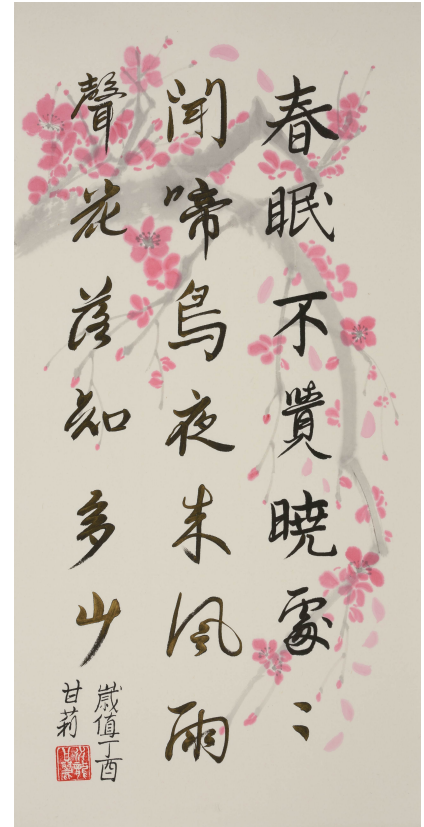 春眠不覺暁處〻
聞啼鳥夜来風雨
聲花落知多少
歲值丁酉
甘莉